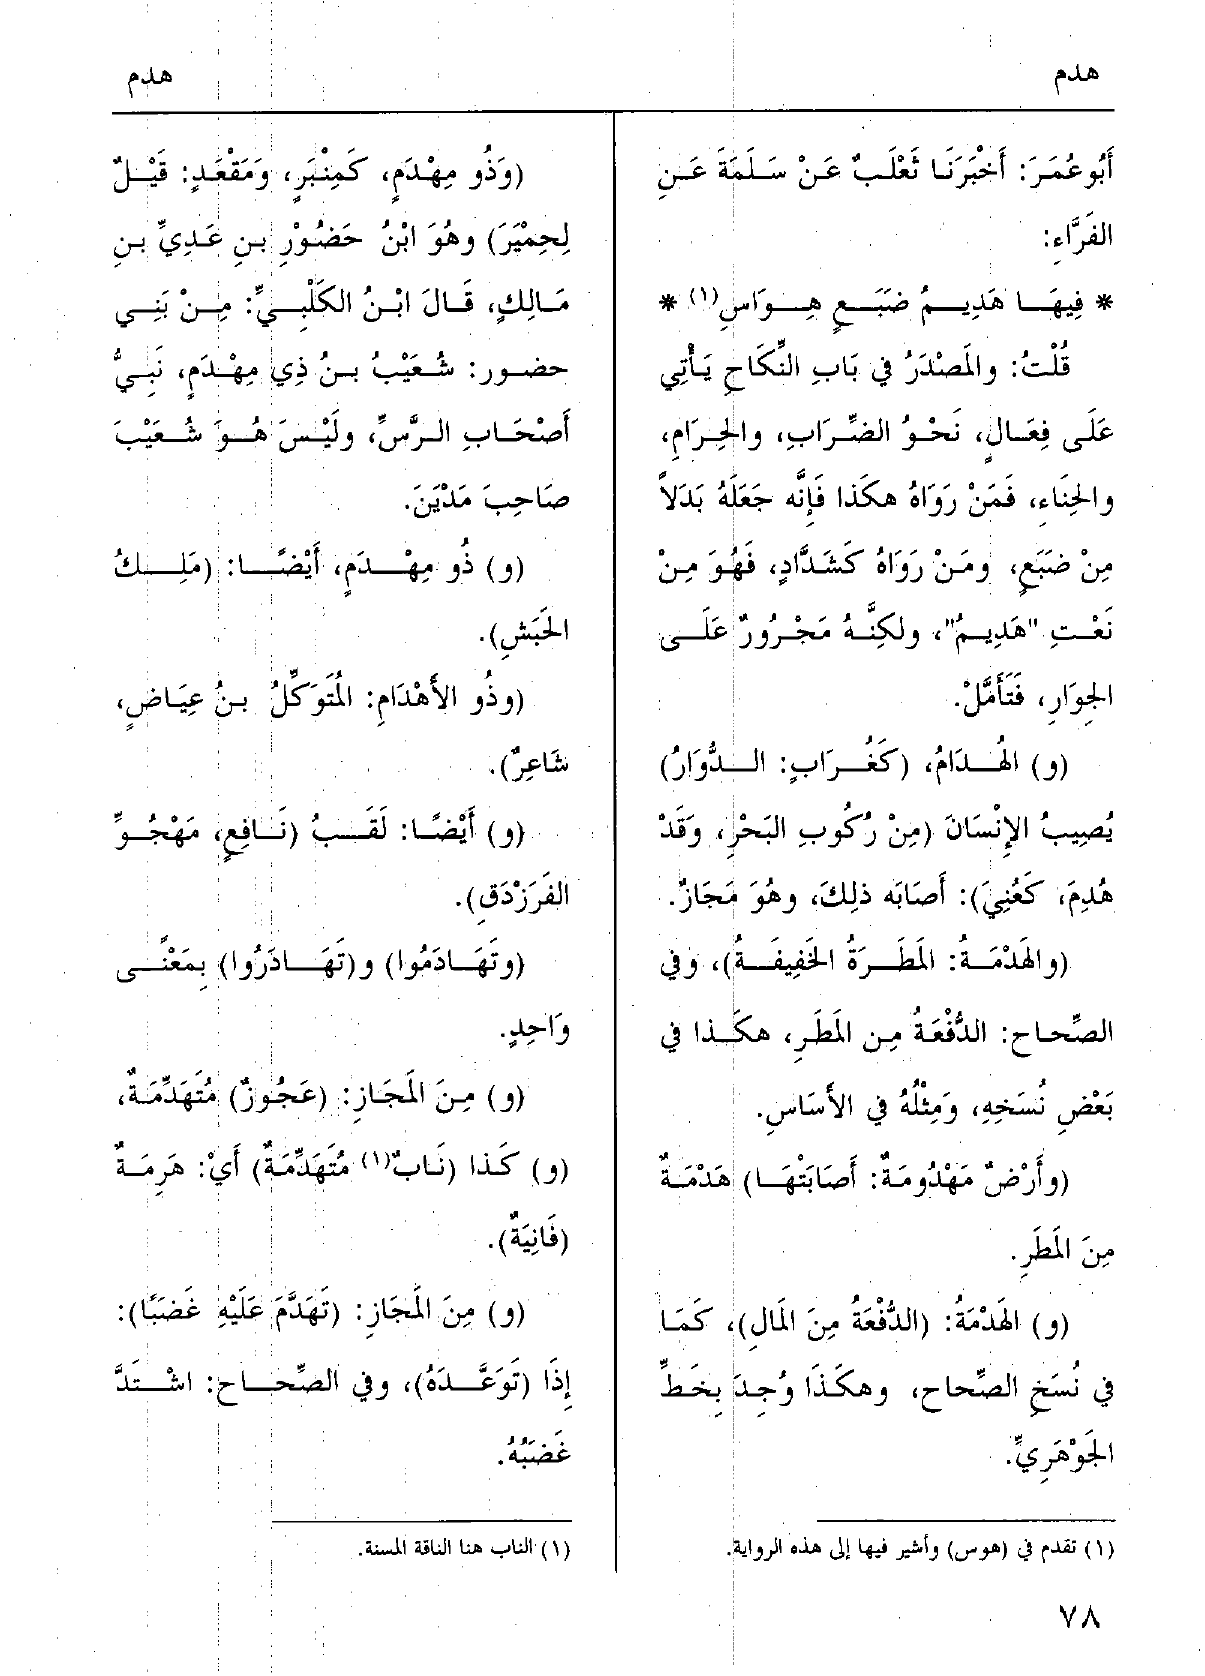 هدم
هدم
أَبُو عُمَرَ: أَخْبَرَنَا ثَعْلَبٌ عَنْ سَلَمَةَ عَنِ
الفَرَّاءِ:
* فِيهَا هَدِيمُ ضَبَعٍ هِوَاسِ(١) *
قُلْتُ: والمَصْدَرُ في بَابِ النِّكَاحِ يَأْتِي
عَلَى فِعَالٍ، نَحْوُ الضِّرَابِ، والحِرَامِ،
والحِنَاءِ، فَمَنْ رَوَاهُ هكَذا فَإِنَّه جَعَلَهُ بَدَلاً
مِنْ ضَبَعٍ، ومَنْ رَوَاهُ كَشَدَّادٍ، فَهُوَ مِنْ
نَعْتِ "هَدِيمُ"، ولكِنَّهُ مَجْرُورٌ عَلَى
الجِوَارِ، فَتَأَمَّلْ.
(و) الهُدَامُ، (كَغُرَابٍ: الدُّوَارُ)
يُصِيبُ الإِنْسَانَ (مِنْ رُكُوبِ البَحْرِ، وَقَدْ
هُدِمَ، كَعُنِيَ): أَصَابَه ذلِكَ، وهُوَ مَجَازٌ.
(والهَدْمَةُ: المَطَرَةُ الخَفِيفَةُ)، وفي
الصِّحاحِ: الدُّفْعَةُ مِن المَطَرِ، هكَذا في
بَعْضِ نُسَخِهِ، وَمِثْلُهُ في الأَسَاسِ.
(وأَرْضٌ مَهْدُومَةٌ: أَصَابَتْهَا) هَدْمَةٌ
مِنَ المَطَرِ.
(و) الهَدْمَةُ: (الدُّفْعَةُ مِنَ المَالِ)، كَمَا
في نُسَخِ الصِّحاحِ، وهكَذَا وُجِدَ بِخَطِّ
الجَوْهَرِيِّ.
(١) تقدم في (هوس) وأشير فيها إلى هذه الرواية.
(وَذُو مِهْدَمٍ، كَمِنْبَرٍ، ومَقْعَدٍ: قَيْلٌ
لِحِمْيَرَ) وهُوَ ابْنُ حَضُوْرِ بنِ عَدِيِّ بنِ
مَالِكٍ، قَالَ ابْنُ الكَلْبِيِّ: مِنْ بَنِي
حضور: شُعَيْبُ بنُ ذِي مِهْدَمٍ، نَبِيُّ
أَصْحَابِ الرَّسِّ، ولَيْسَ هُوَ شُعَيْبَ
صَاحِبَ مَدْيَنَ.
(و) ذُو مِهْدَمٍ، أَيْضًا: (مَلِكُ
الحَبَشِ).
(وذُو الأَهْدَامِ: المُتَوَكِّلُ بنُ عِيَاضٍ،
شَاعِرٌ).
(و) أَيْضًا: لَقَبُ (نَافِعٍ، مَهْجُوِّ
الفَرَزْدَقِ).
(وتَهَادَمُوا) و(تَهَادَرُوا) بِمَعْنًى
وَاحِدٍ.
(و) مِنَ المَجَازِ: (عَجُوزٌ) مُتَهَدِّمَةٌ،
(و) كَذا (نَابٌ(١) مُتَهَدِّمَةٌ) أَيْ: هَرِمَةٌ
(فَانِيَةٌ).
(و) مِنَ المَجَازِ: (تَهَدَّمَ عَلَيْهِ غَضَبًا):
إِذَا (تَوَعَّدَهُ)، وفي الصِّحَاحِ: اشْتَدَّ
غَضَبُهُ.
(١) الناب هنا الناقة المسنة.
٧٨